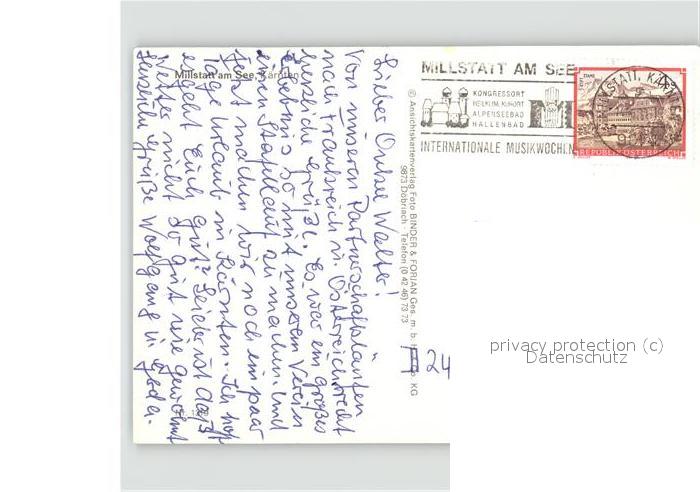 Millstatt am See, Kärnten
Lieber Onkel Walter!
Von unseren Partnerschaftsläufen
nach Frankreich u. Österreich recht
herzliche Grüße. Es war ein großes
Erlebnis so mit unserem Verein
einen Staffellauf zu machen. Und
jetzt machen wir noch ein paar
Tage Urlaub in Kärnten. Ich hoff
es geht Euch gut? Leider ist das
Wetter nicht so gut wie gewohnt
Herzliche Grüße Wolfgang u.
MILLSTATT AM SEE
KONGRESSORT
HEILKLIM. KURORT
ALPENSEEBAD
HALLENBAD
INTERNATIONALE MUSIKWOCHEN
REPUBLIK ÖSTERREICH
© Ansichtskartenverlag Foto BINDER & FORIAN Ges. m. b. H. KG
9873 Döbriach - Telefon (0 42 46) 78 73
24
privacy protection (c)
Datenschutz